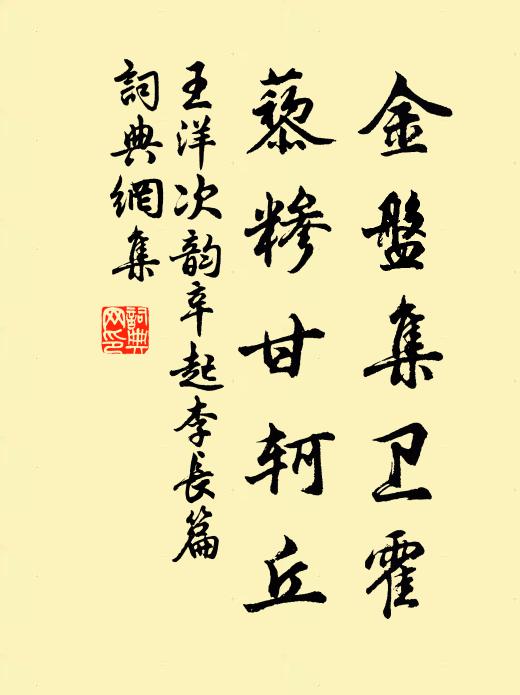 金盤集卫霍
藜糁甘轲丘
王洋次韵辛起李長篇
詞典網集
詞典网印